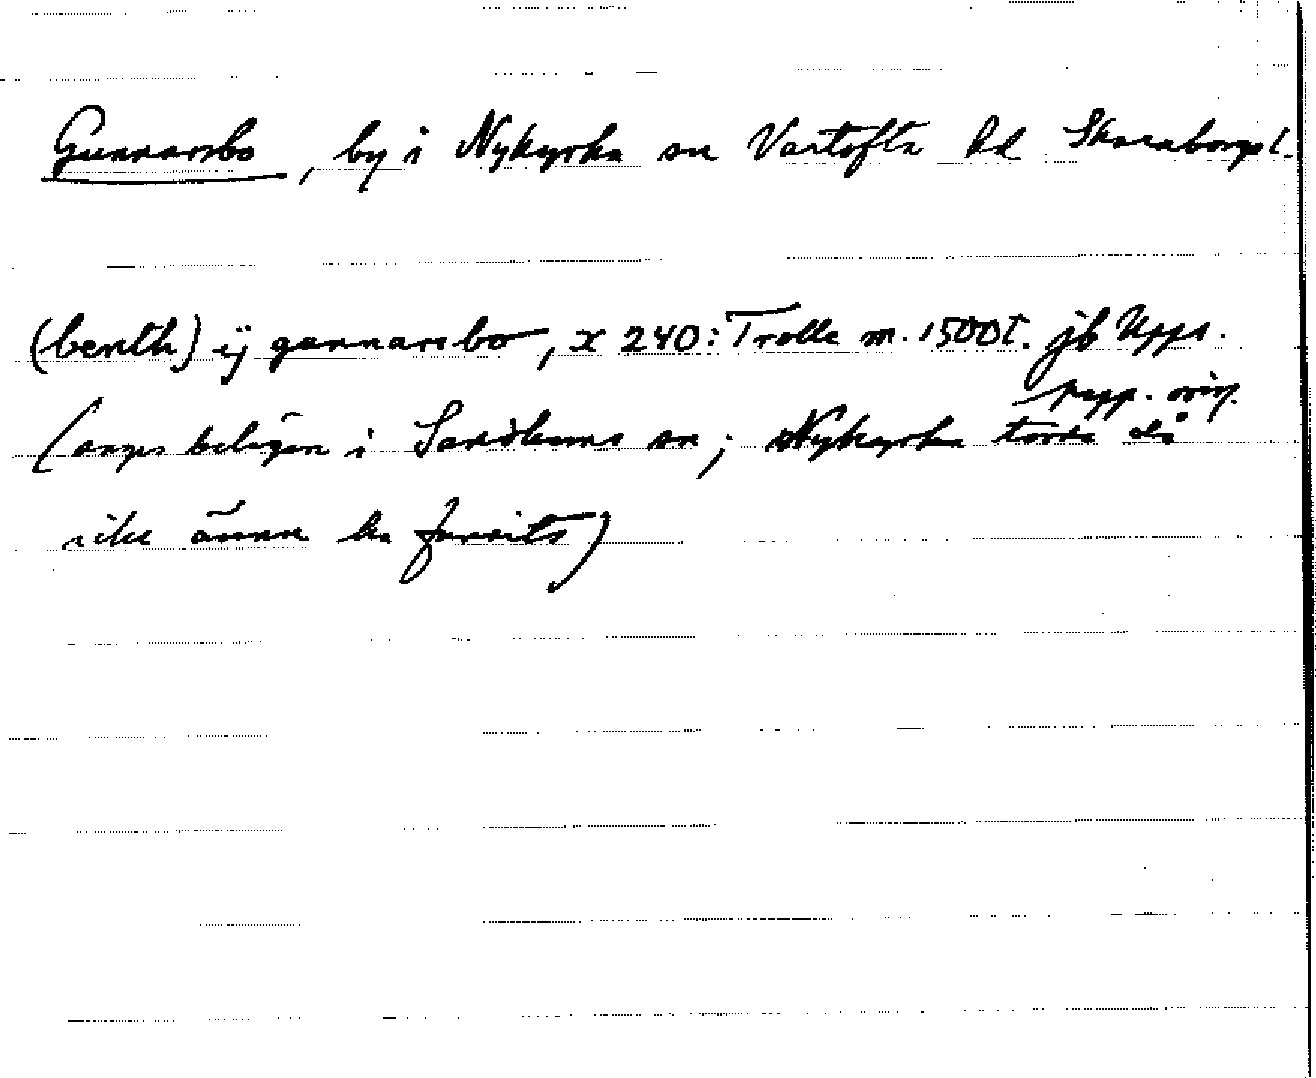 Gunnarsbo, by i Nykyrka sn Vartofta hd Skaraborgs l.
(benth) ij gunnarsbo, x 240: Trolle m. 1500t. jb Upps.
papp. orig.
(anges belägen i Sandhems sn; Nykyrka torde då
icke ännu ha funnits)